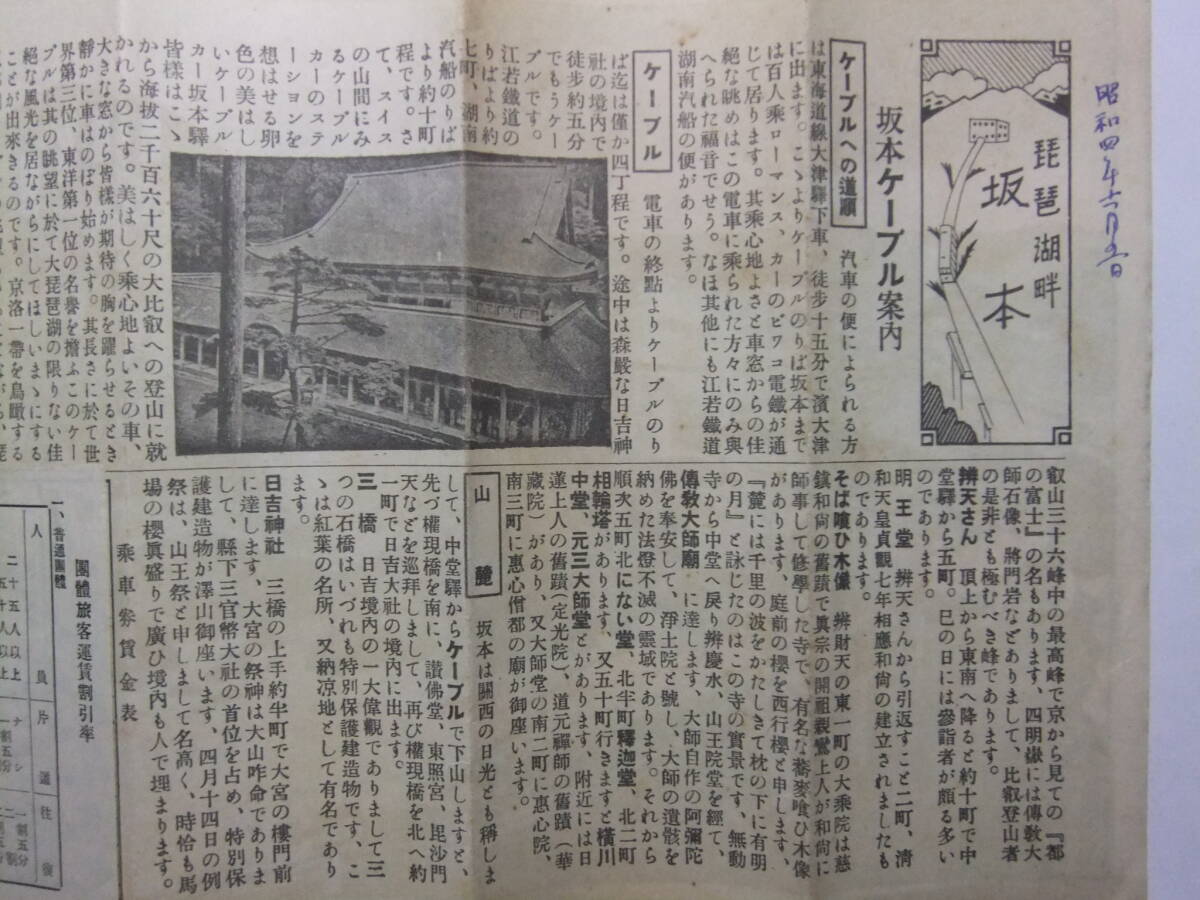 昭和四年六月
琵琶湖畔
坂本
坂本ケーブル案内
ケーブルへの道順 汽車の便によられる方
は東海道線大津驛下車、徒歩十五分で濱大津
に出ます。こゝよりケーブルのりば坂本まで
は百人乘ローマンス、カーのビワコ電鐵が通
じて居ります。其乘心地よさと車窓からの佳
絕な眺めはこの電車に乘られた方々にのみ與
へられた福音でせう。なほ其他にも江若鐵道
湖南汽船の便があります。
ケーブル 電車の終點よりケーブルのり
ば迄は僅か四丁程です。途中は森嚴な日吉神
社の境內で
徒步約五分
でもうケー
ブルです。
江若鐵道の
りばより約
七町、湖南
汽船のりば
より約十町
程です。さ
て、スイス
の山間にみ
るケーブル
カーのステ
ーションを
想はせる卵
色の美はし
いケーブル
カー坂本驛
皆樣はこゝ
から海拔二千百六十尺の大比叡への登山に就
かれるのです。美はしく乘心地よいその車、
大きな窓から皆樣が期待の胸を躍らせるとき
靜かに車はのぼり始めます。其長さに於て世
界第三位、東洋第一位の名譽を擔ふこのケー
ブルは其の眺望に於て大琵琶湖の限りない佳
絕な風光を居ながらにしてほしいまゝにする
ことが出來きるのです。京洛一帶を鳥瞰する
叡山三十六峰中の最高峰で京から見ての『都
の富士』の名もあります。四明嶽には傳敎大
師石像、將門岩などありまして、比叡登山者
の是非とも極むべき峰であります。
辨天さん 頂上から東南へ降ると約十町で中
堂驛から五町。巳の日には參詣者が頗る多い
のであります。
明王堂 辨天さんから引返すこと二町、淸
和天皇貞觀七年相應和尙の建立されましたも
のであります。
そば喰ひ木像 辨財天の東一町の大乘院は慈
鎭和尙の舊蹟で眞宗の開祖親鸞上人が和尙に
師事して修學した寺で、有名な蕎麥喰ひ木像
があります。庭前の櫻を西行櫻と申します、
『麓には千里の波をかたしきて枕の下に有明
の月』と詠じたのはこの寺の實景です、無動
寺から中堂へ戾り辨慶水、山王院堂を經て、
傳敎大師廟 に達します、大師自作の阿彌陀
佛を奉安して、淨土院と號し、大師の遺骸を
納めた法燈不滅の靈域であります。それから
順次五町北にない堂、北半町釋迦堂、北二町
相輪塔があります。又五十町行きますと橫川
中堂、元三大師堂とがあります、附近には日
蓮上人の舊蹟(定光院)、道元禪師の舊蹟(華
藏院)があり、又大師堂の南二町に惠心院
南三町に惠心僧都の廟が御座います。
山麓 坂本は關西の日光とも稱しま
して、中堂驛からケーブルで下山しますと、
先づ權現橋を南に、讃佛堂、東照宮、毘沙門
天などを巡拜しまして、再び權現橋を北へ約
一町で日吉大社の境內に出ます。
三橋 日吉境內の一大偉觀でありまして三
つの石橋はいづれも特別保護建造物です、こ
ゝは紅葉の名所、又納凉地として有名であり
ます。
日吉神社 三橋の上手約半町で大宮の樓門前
に達します、大宮の祭神は大山咋命でありま
して、縣下三官幣大社の首位を占め、特別保
護建造物が澤山御座います、四月十四日の例
祭は、山王祭と申しまして名高く、時恰も馬
場の櫻眞盛りで廣ひ境內も人で埋まります。
乘車券賃金表
團體旅客運賃割引率
一、普通團體
人員
片道
往復
二十五人以上
ナシ
一割五分
五十人以上
一割五分